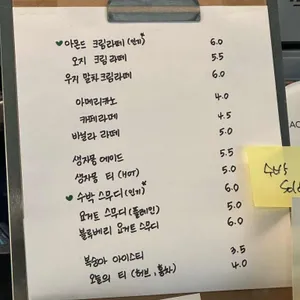 ♥아몬드 크림라떼 (인기)* 6.0
오지 크림라떼 5.5
우지 말차크림라떼 6.0
아메리카노 4.0
카페라떼 4.5
바닐라 라떼 5.0
생자몽 에이드 5.5
생자몽 티 (HOT) 5.0
♥수박 스무디 (인기)* 6.0
요거트 스무디 (플레인) 5.0
블루베리 요거트 스무디 6.0
복숭아 아이스티 3.5
오늘의 티 (허브, 홍차) 4.0
수박
Sold